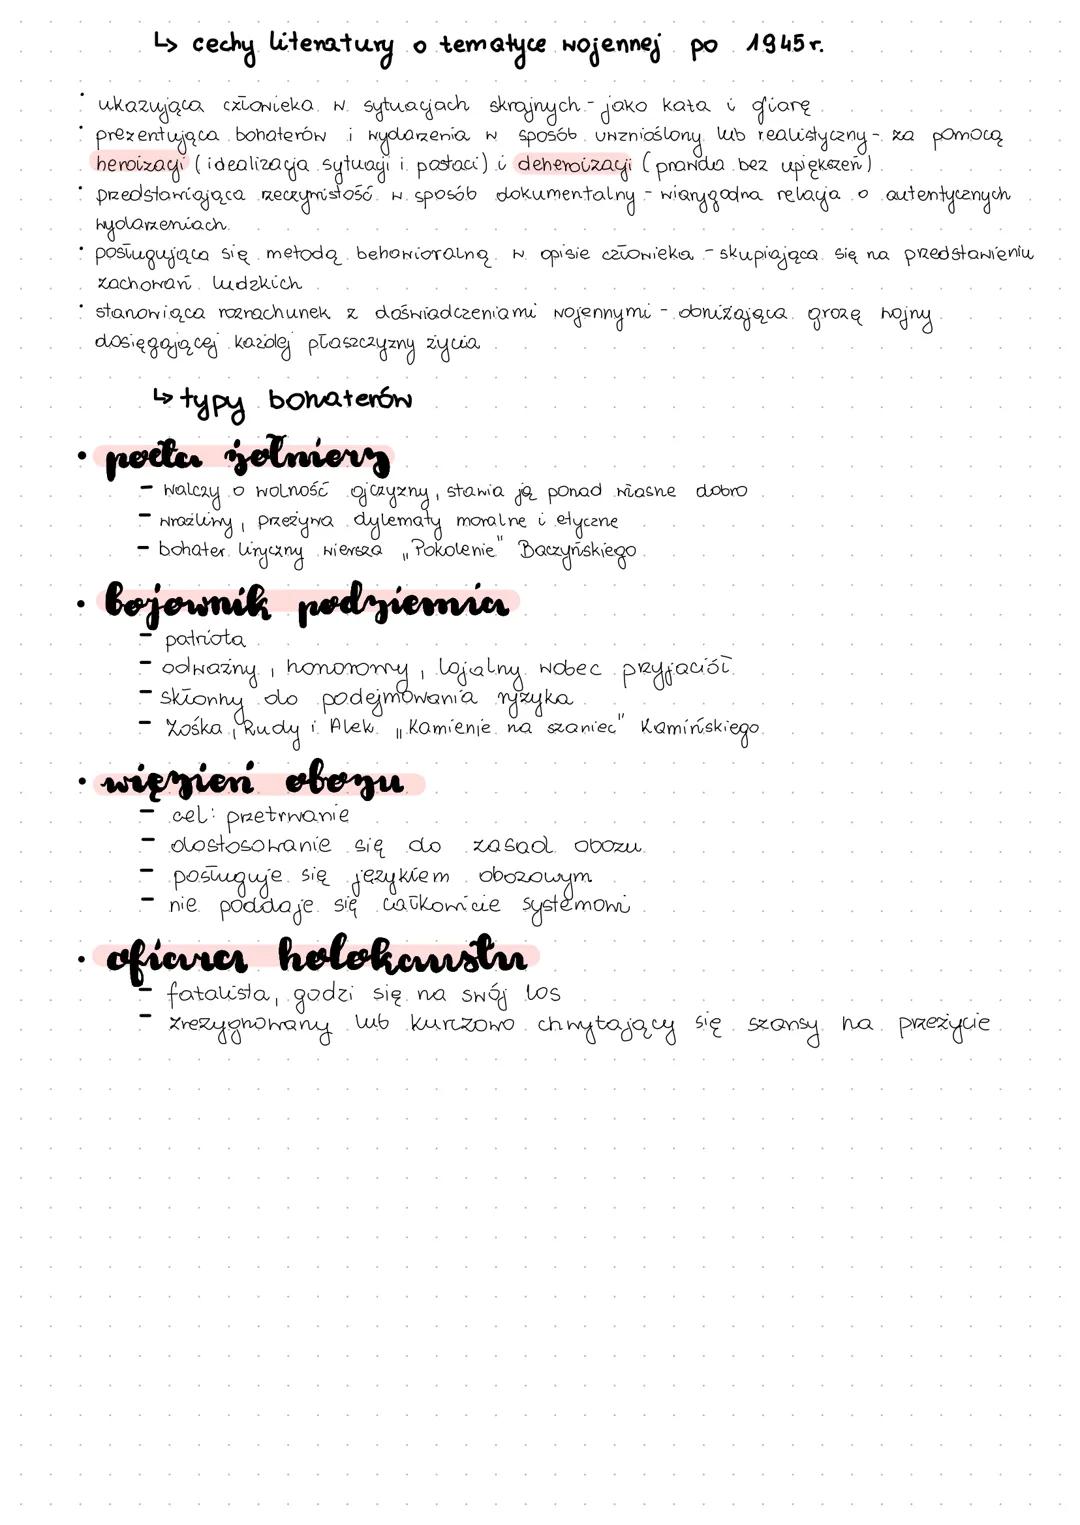 ↳ cechy literatury o tematyce wojennej po 1945r.
• ukazująca człowieka w sytuacjach skrajnych - jako kata i ofiarę
• prezentująca bohaterów i wydarzenia w sposób wzniosłony lub realistyczny - za pomocą
heroizacji (idealizacja sytuacji i postaci) i deheroizacji (prawda bez upiększeń)
• przedstawiająca rzeczywistość w sposób dokumentalny - wiarygodna relacja o autentycznych
wydarzeniach
• posługująca się metodą behawioralną w opisie człowieka - skupiająca się na przedstawieniu
zachowań ludzkich
• stanowiąca rozrachunek z doświadczeniami wojennymi - obniżająca grozę wojny
dosięgającej każdej płaszczyzny życia
↳ typy bohaterów
• poeta żołnierz
- walczy o wolność ojczyzny, stawia ją ponad własne dobro
- wrażliwy, przeżywa dylematy moralne i etyczne
- bohater liryczny wiersza „Pokolenie" Baczyńskiego
• bojownik podziemia
- patriota
- odważny, honorowy, lojalny wobec przyjaciół
- skłonny do podejmowania ryzyka
- Zośka, Rudy i Alek „Kamienie na szaniec" Kamińskiego
• więzień obozu
- cel: przetrwanie
- dostosowanie się do zasad obozu
- posługuje się językiem obozowym
- nie poddaje się całkowicie systemowi
• ofiara holokaustu
- fatalista, godzi się na swój los
- zrezygnowany lub kurczowo chwytający się szansy na przeżycie